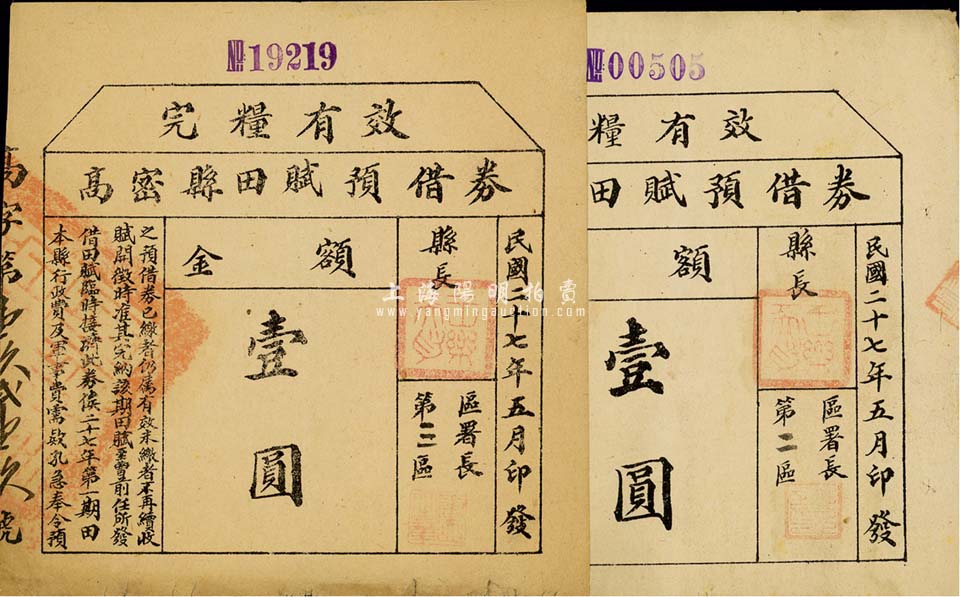 №19219
完糧有效
高密縣田賦預借券
民國二十七年五月印發
縣長
區署長
第二區
金額
壹圓
本縣行政費及軍事費需款孔急奉令預
借田賦臨時接濟此券俟二十七年第一期田
賦開徵時准其完納該期田賦至曹前任所發
之預借券已繳者仍屬有效未繳者不再續收
高字第
號
上海陽明拍賣
www.yangmingauction.com
№00505
糧有效
田賦預借券
民國二十七年五月印發
縣長
區署長
第二區
額
壹圓